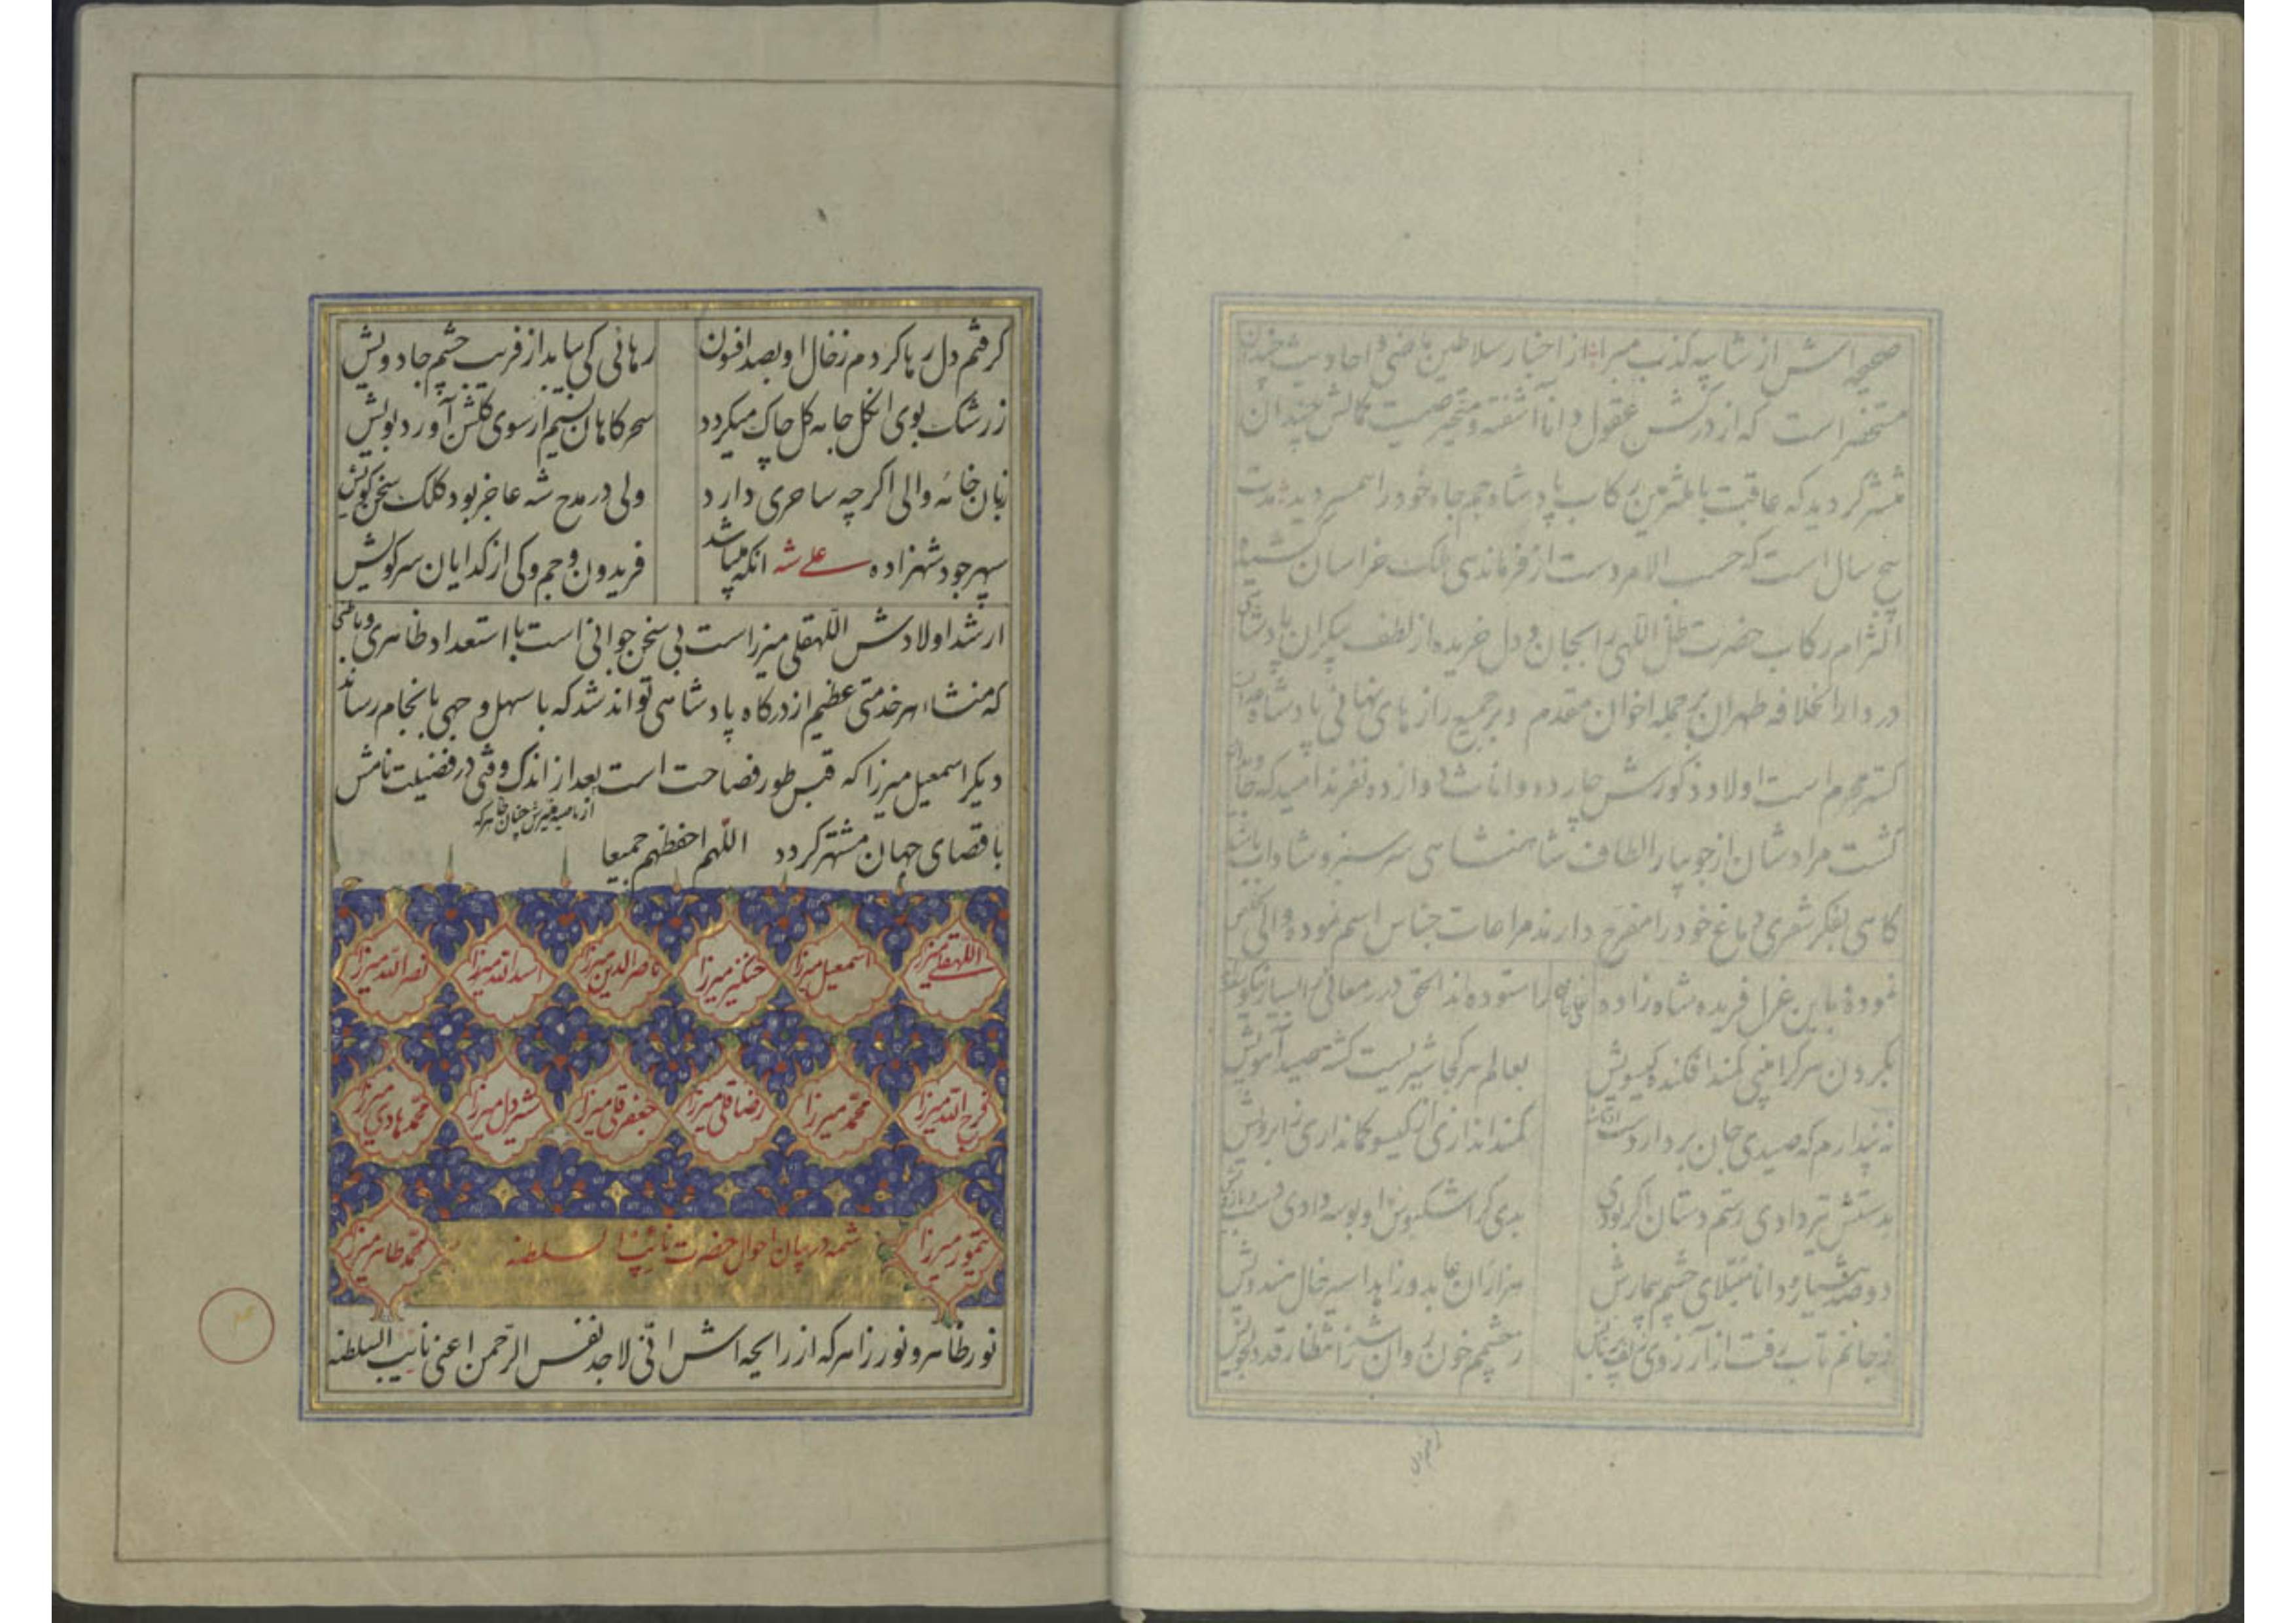 صحیحه اش از شایبه کذب مبرا از اخبار سلاطین ماضی و احادیث
مستحضر است که از درکش عقول دانا آشفته و متحیر صیت کمالش چندان
منتشر گردید که عاقبت باملتزمین رکاب پادشاه جمجاه خود را همسر دید مدت
پنج سال است که حسب الامر دست از فرماندی ملک خراسان کشیده
التزام رکاب حضرت ظل اللهی را بجان و دل خریده از لطف بیکران پادشاهی
در دارالخلافه طهران بر جمله اخوان مقدم و بر جمیع رازهای نهانی پادشاه
محرم است اولاد ذکورش چارده و اناث دوازده نفرند امید که
کشت مرادشان از جویبار الطاف شاهنشاهی سرسبز و شاداب باشد
کاهی بفکر شعری دماغ خود را مفرح دارند مراعات جناس اسم نموده والی تخلص
نموده باین غزل فریده شاه زاده علی شاه را ستوده اند الحق در معانی بسیار نیکو
بگردن هر کرا بینی کمند افکنده گیسویش
بعالم هر کجا شیریست گشته صید آهویش
نه پندارم که صیدی جان برد از دست
کمند اندازی از گیسو کمانداری ز ابرویش
بدستش تیر دادی رستم دستان اگر بودی
بدی گر اشکبوش او بوسه دادی دست
دو صد هشیار و دانا مبتلای چشم بیمارش
هزاران عابد و زاهد اسیر خال هندویش
ز جانم تاب رفت از آرزوی زلف
ز چشمم خون روان شد ز انتظار قد دلجویش
گرفتم دل رها کردم ز خال او بصد افسون
رهائی کی بیابد از فریب چشم جادویش
ز رشک بوی انگل جامه گل چاک میگردد
سحرگاهان نسیم ار سوی گلشن آورد بویش
زبان خامه والی اگر چه ساحری دارد
ولی در مدح شه عاجز بود کلک سخن گویش
سپهر جود شهزاده علی شه انکه میباشد
فریدون و جم و کی از گدایان سر کویش
ارشد اولادش اللهقلی میرزاست بی سخن جوانی است با استعداد ظاهری و باطنی
که منشاء هر خدمتی عظیم از درگاه پادشاهی تواند شد که با سهل وجهی بانجام رساند
دیگر اسمعیل میرزا که قبس طور فصاحت است بعد از اندک وقتی در فضیلت نامش
از ناصیه منیرش چنان ظاهر که
باقصای جهان مشتهر گردد اللهم احفظهم جمیعا
اللهقلی میرزا اسمعیل میرزا چنگیز میرزا ناصرالدین میرزا اسدالله میرزا نصرالله میرزا
فرج الله میرزا محمد میرزا رضاقلی میرزا جعفرقلی میرزا شیردل میرزا محمد هادی میرزا
تیمور میرزا شمه در بیان احوال حضرت نائب السلطنه محمد طاهر میرزا
نور ظاهر و نور زاهر که از رایحه اش انی لاجد نفس الرحمن اعنی نایب السلطنه